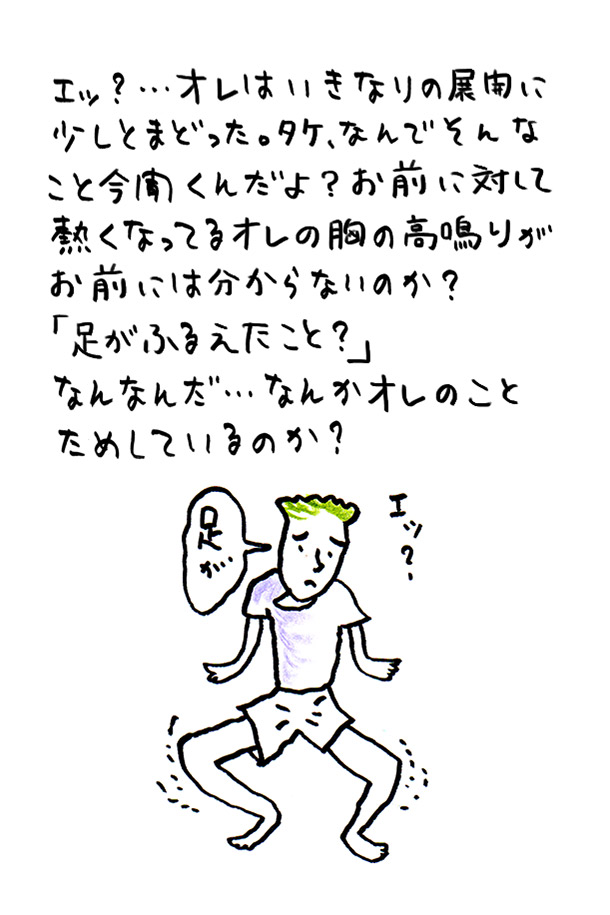 エッ？…オレはいきなりの展開に
少しとまどった。タケ、なんでそんな
こと今聞くんだよ？お前に対して
熱くなってるオレの胸の高鳴りが
お前には分からないのか？
「足がふるえたこと？」
なんなんだ…なんかオレのこと
ためしているのか？
足が
エッ？